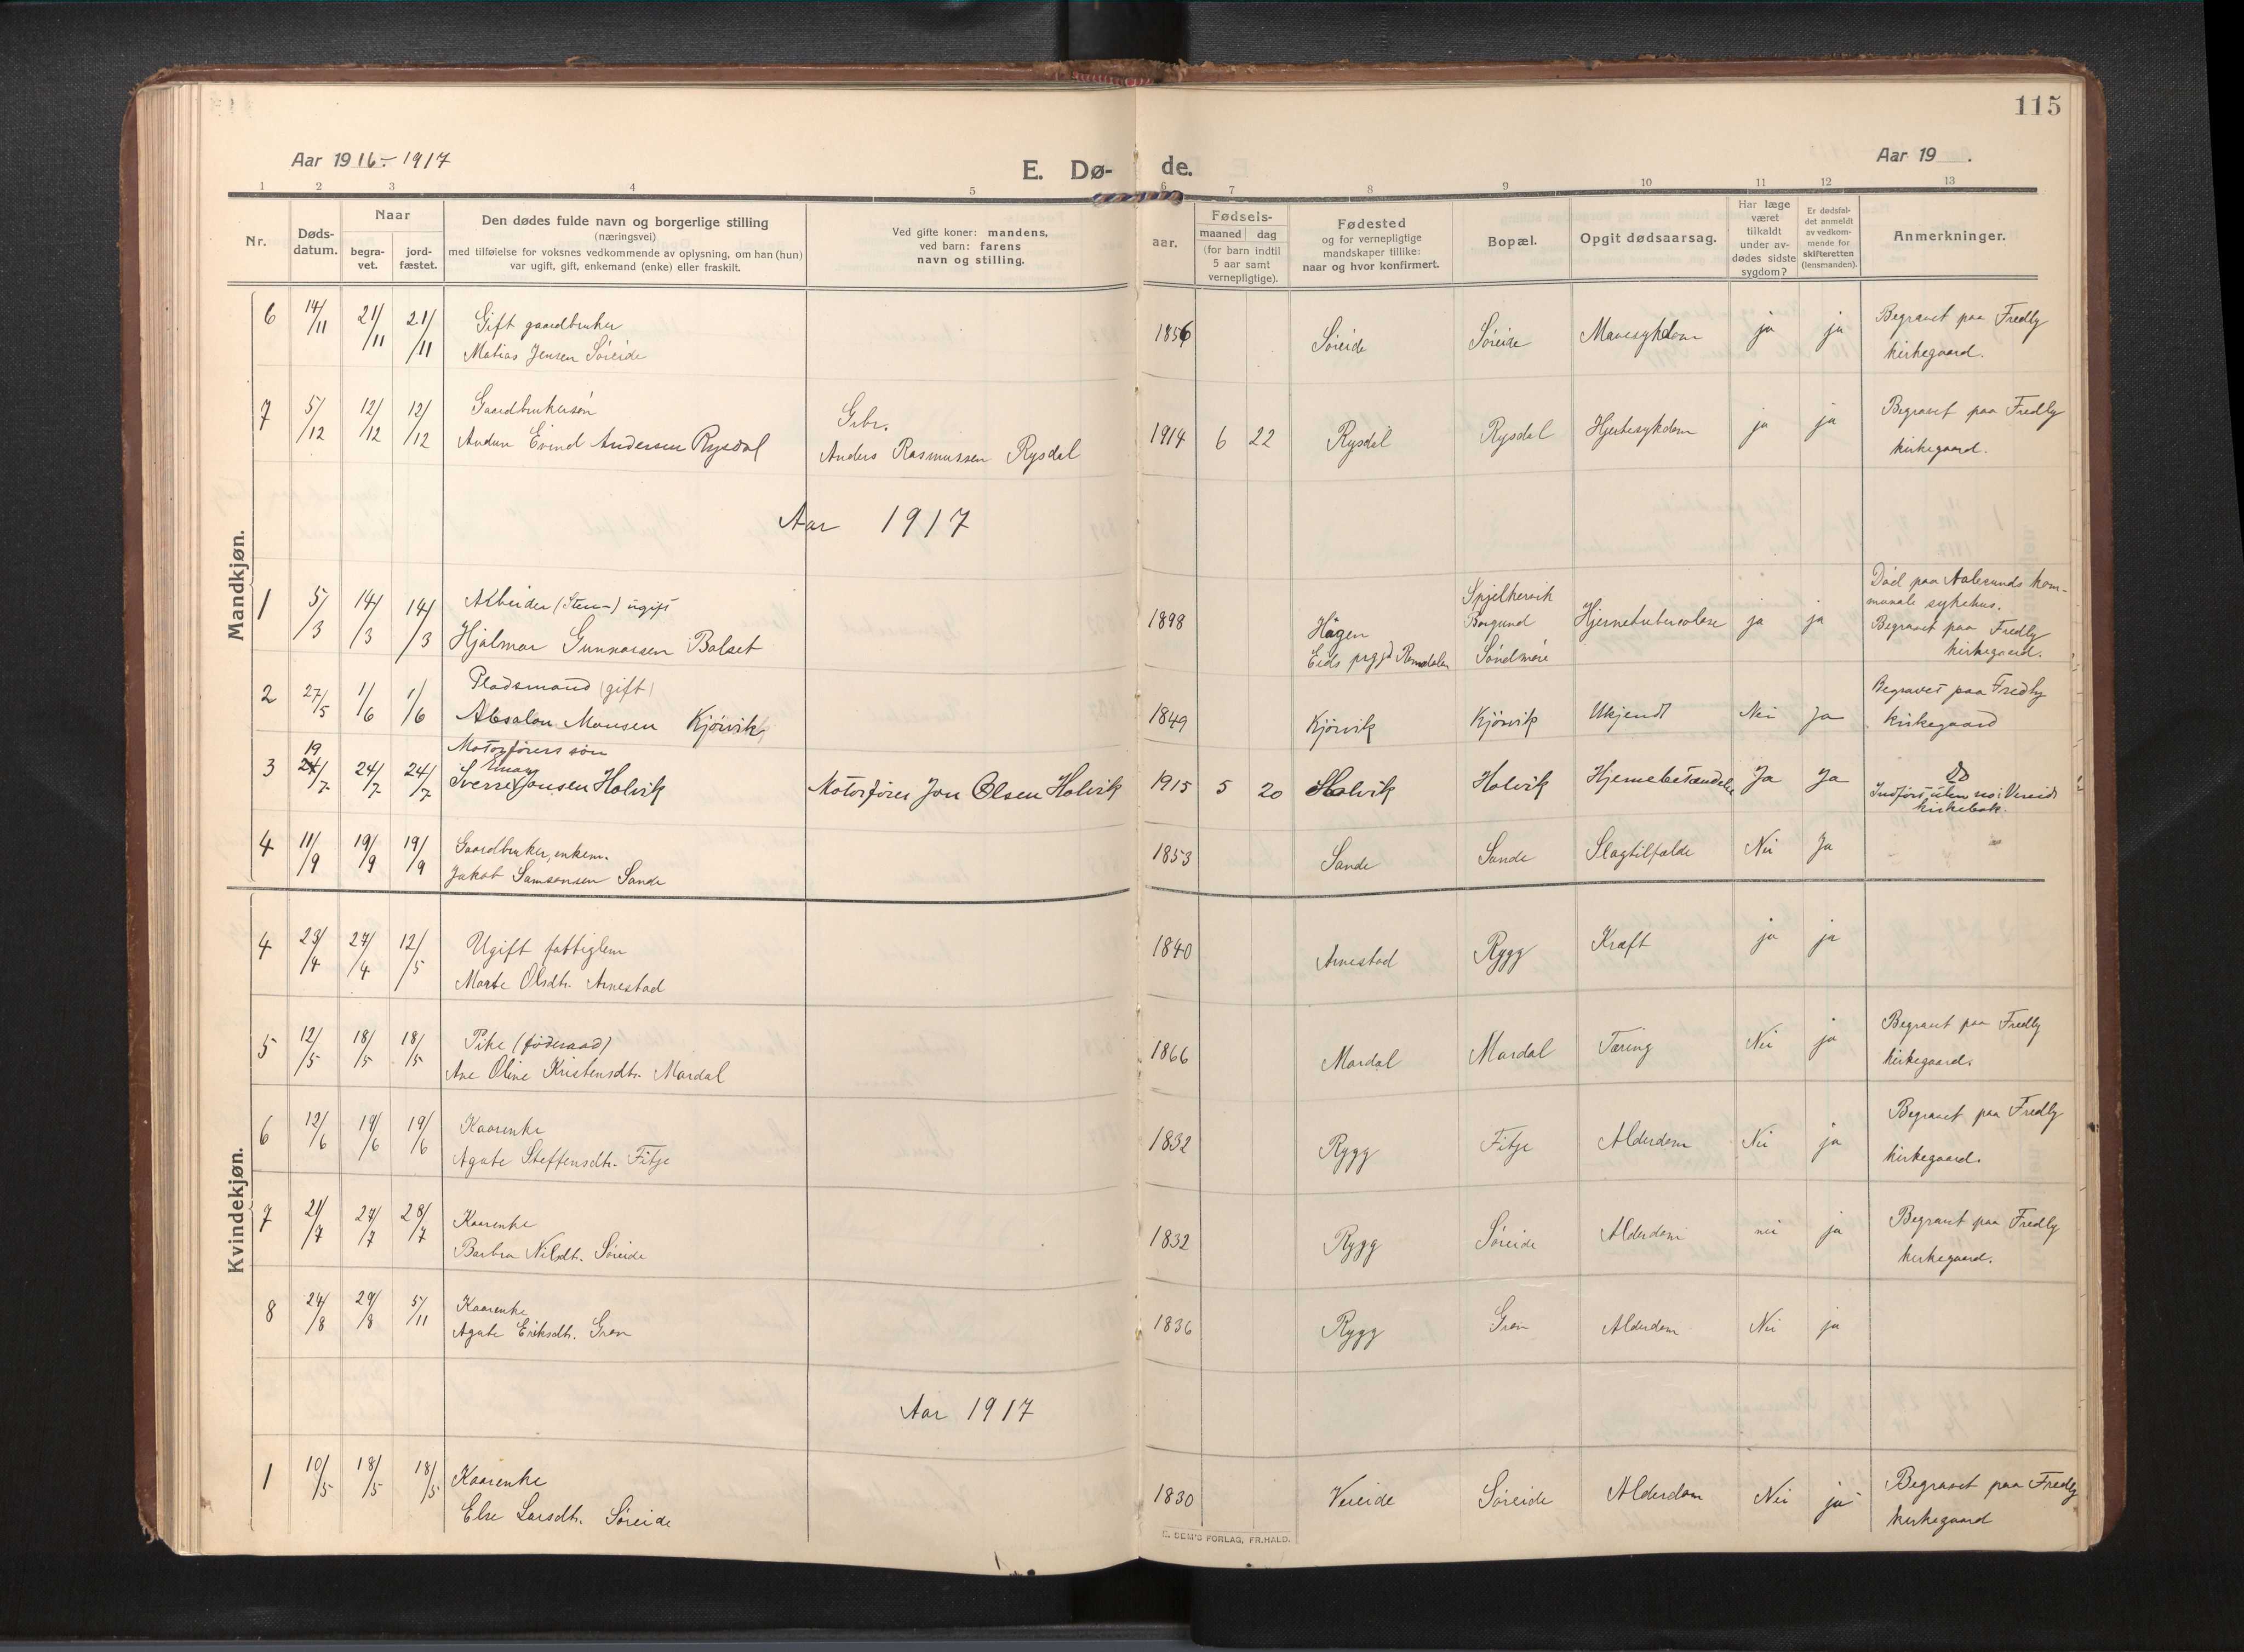 115
Aar 1916 - 1917
E. Dø-
de.
Aar 19 .
1 2 3 4 5 6 7 8 9 10 11 12 13
Nr.
Døds-
datum.
Naar
begra-
vet.
jord-
fæstet.
Den dødes fulde navn og borgerlige stilling
(næringsvei)
med tilføielse for voksnes vedkommende av oplysning, om han (hun)
var ugift, gift, enkemand (enke) eller fraskilt.
Ved gifte koner: mandens,
ved barn: farens
navn og stilling.
aar.
Fødsels-
maaned dag
(for barn indtil
5 aar samt
vernepligtige).
Fødested
og for vernepligtige
mandskaper tillike:
naar og hvor konfirmert.
Bopæl.
Opgit dødsaarsag.
Har læge
været
tilkaldt
under av-
dødes sidste
sygdom?
Er dødsfal-
det anmeldt
av vedkom-
mende for
skifteretten
(lensmanden).
Anmerkninger.
Mandkjøn.
6 14/11 21/11 21/11 Gift gaardbruker
Matias Jensen Søreide
1856 Søreide Søreide Mavesykdom ja ja Begravet paa Fredly
kirkegaard.
7 5/12 12/12 12/12 Gaardbrukersøn
Andun Eivind Andersen Rysdal
Gbr.
Anders Rasmussen Rysdal
1914 6 22 Rysdal Rysdal Hjertesykdom ja ja Begravet paa Fredly
kirkegaard.
Aar 1917
1 5/3 14/3 14/3 Arbeider (Sten-) ugift
Hjalmar Gunnarsen Balset
1898 Hagen
Eids prgjd Romsdalen
Spjelkevik
Borgund
Søndmøre
Hjernetuberculose ja ja Død paa Aalesunds kom-
munale sykehus.
Begravet paa Fredly
kirkegaard.
2 27/5 1/6 1/6 Pladsmand (gift)
Absalon Monsen Kjørvik
1849 Kjørvik Kjørvik Ukjendt Nei Ja Begravet paa Fredly
kirkegaard
3 19/7 24/7 24/7 Motorførers søn
Sverre Einar Jonsen Holvik
Motorfører Jon Olsen Holvik
1915 5 20 Holvik Holvik Hjernebetændelse Ja Ja Do
Indført uten no i Vereids
kirkebok.
4 11/9 19/9 19/9 Gaardbruker, enkem.
Jakob Samsonsen Sande
1853 Sande Sande Slagtilfælde Nei Ja
Kvindekjøn.
4 23/4 27/4 12/5 Ugift fattiglem
Marte Olsdtr. Arnestad
1840 Arnestad Rygg Kræft ja ja
5 12/5 18/5 18/5 Pike (føderaad)
Ane Oline Kristensdtr. Mardal
1866 Mardal Mardal Tæring Nei ja Begravet paa Fredly
kirkegaard.
6 12/6 19/6 19/6 Kaarenke
Agate Steffensdtr. Fitje
1832 Rygg Fitje Alderdom Nei ja Begravet paa Fredly
kirkegaard.
7 21/7 27/7 28/7 Kaarenke
Barbra Nilsdtr. Søreide
1832 Rygg Søreide Alderdom nei ja Begravet paa Fredly
kirkegaard.
8 24/8 29/8 5/11 Kaarenke
Agate Eriksdtr. Gren
1836 Rygg Gren Alderdom Nei ja
Aar 1917
1 10/5 18/5 18/5 Kaarenke
Else Larsdtr. Søreide
1830 Vereide Søreide Alderdom Nei ja Begravet paa Fredly
kirkegaard
E. SEM'S FORLAG, FR.HALD.